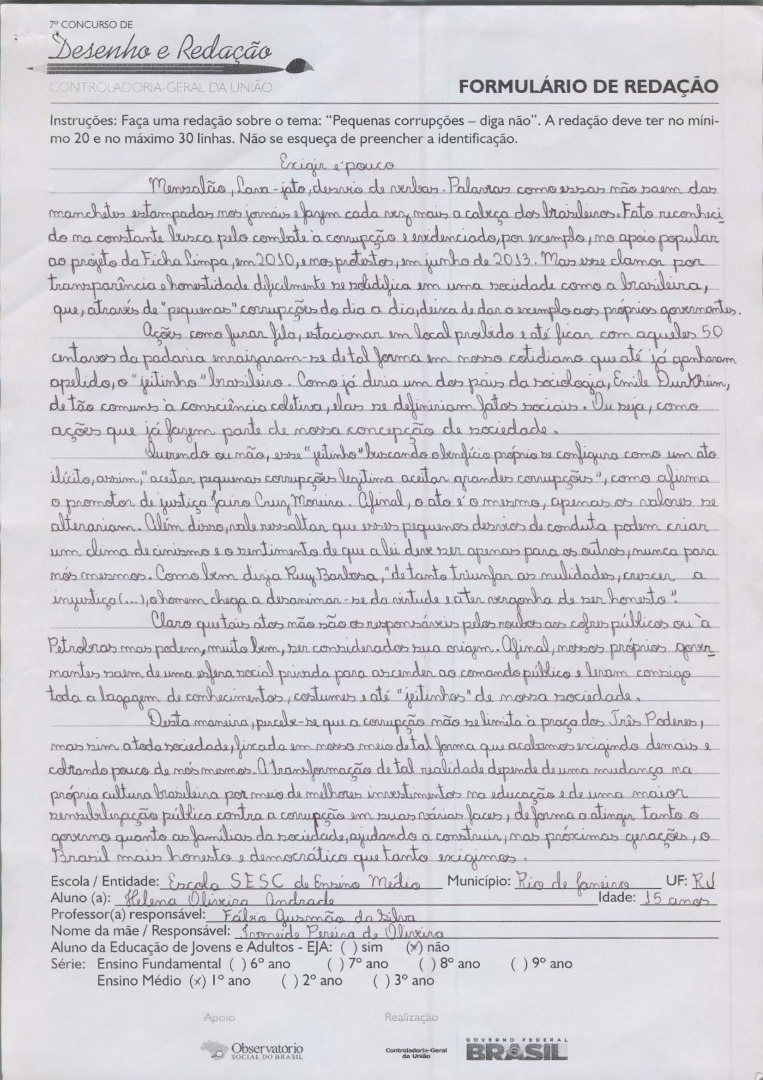 7º CONCURSO DE
Desenho e Redação
CONTROLADORIA-GERAL DA UNIÃO
FORMULÁRIO DE REDAÇÃO
Instruções: Faça uma redação sobre o tema: “Pequenas corrupções – diga não”. A redação deve ter no míni-
mo 20 e no máximo 30 linhas. Não se esqueça de preencher a identificação.
Exigir é pouco
Mensalão, Lava-jato, desvio de verbas. Palavras como essas não saem das
manchetes estampadas nos jornais e fazem cada vez mais a cabeça dos brasileiros. Fato reconheci-
do na constante busca pelo combate à corrupção e evidenciado, por exemplo, no apoio popular
ao projeto da Ficha Limpa, em 2010, e nos protestos, em junho de 2013. Mas esse clamor por
transparência e honestidade dificilmente se solidifica em uma sociedade como a brasileira,
que, através de "pequenas" corrupções do dia a dia, deixa de dar o exemplo aos próprios governantes.
Ações como furar fila, estacionar em local proibido e até ficar com aqueles 50
centavos da padaria enraizaram-se de tal forma em nosso cotidiano que até já ganharam
apelido, o "jeitinho" brasileiro. Como já diria um dos pais da sociologia, Émile Durkheim,
de tão comuns à consciência coletiva, elas se definiriam fatos sociais. Ou seja, como
ações que já fazem parte de nossa concepção de sociedade.
Querendo ou não, esse "jeitinho" buscando o benefício próprio se configura como um ato
ilícito, assim, "aceitar pequenas corrupções legitima aceitar grandes corrupções", como afirma
o promotor de justiça Jairo Cruz Moreira. Afinal, o ato é o mesmo, apenas os valores se
alterariam. Além disso, vale ressaltar que esses pequenos desvios de conduta podem criar
um clima de cinismo e o sentimento de que a lei deve ser apenas para os outros, nunca para
nós mesmos. Como bem dizia Ruy Barbosa, "de tanto triunfar as nulidades, crescer a
injustiça (...), o homem chega a desanimar-se da virtude e a ter vergonha de ser honesto".
Claro que tais atos não são os responsáveis pelos roubos aos cofres públicos ou à
Petrobras mas podem, muito bem, ser considerados sua origem. Afinal, nossos próprios gover-
nantes saem de uma esfera social privada para ascender ao comando público e levam consigo
toda a bagagem de conhecimentos, costumes e até "jeitinhos" de nossa sociedade.
Desta maneira, percebe-se que a corrupção não se limita à praça dos Três Poderes,
mas sim a toda sociedade, fixada em nosso meio de tal forma que acabamos exigindo demais e
cobrando pouco de nós mesmos. A transformação de tal realidade depende de uma mudança na
própria cultura brasileira por meio de melhores investimentos na educação e de uma maior
sensibilização pública contra a corrupção em suas várias faces, de forma a atingir tanto o
governo quanto as famílias da sociedade, ajudando a construir, nas próximas gerações, o
Brasil mais honesto e democrático que tanto exigimos.
Escola / Entidade: Escola SESC de Ensino Médio Município: Rio de Janeiro UF: RJ
Aluno (a): Helena Oliveira Andrade Idade: 15 anos
Professor(a) responsável: Fábio Gusmão da Silva
Nome da mãe / Responsável: Ivoneide Pereira de Oliveira
Aluno da Educação de Jovens e Adultos - EJA: ( ) sim (x) não
Série: Ensino Fundamental ( ) 6º ano ( ) 7º ano ( ) 8º ano ( ) 9º ano
Ensino Médio (x) 1º ano ( ) 2º ano ( ) 3º ano
Apoio Realização
Observatório
SOCIAL DO BRASIL
Controladoria-Geral
da União
GOVERNO FEDERAL
BRASIL